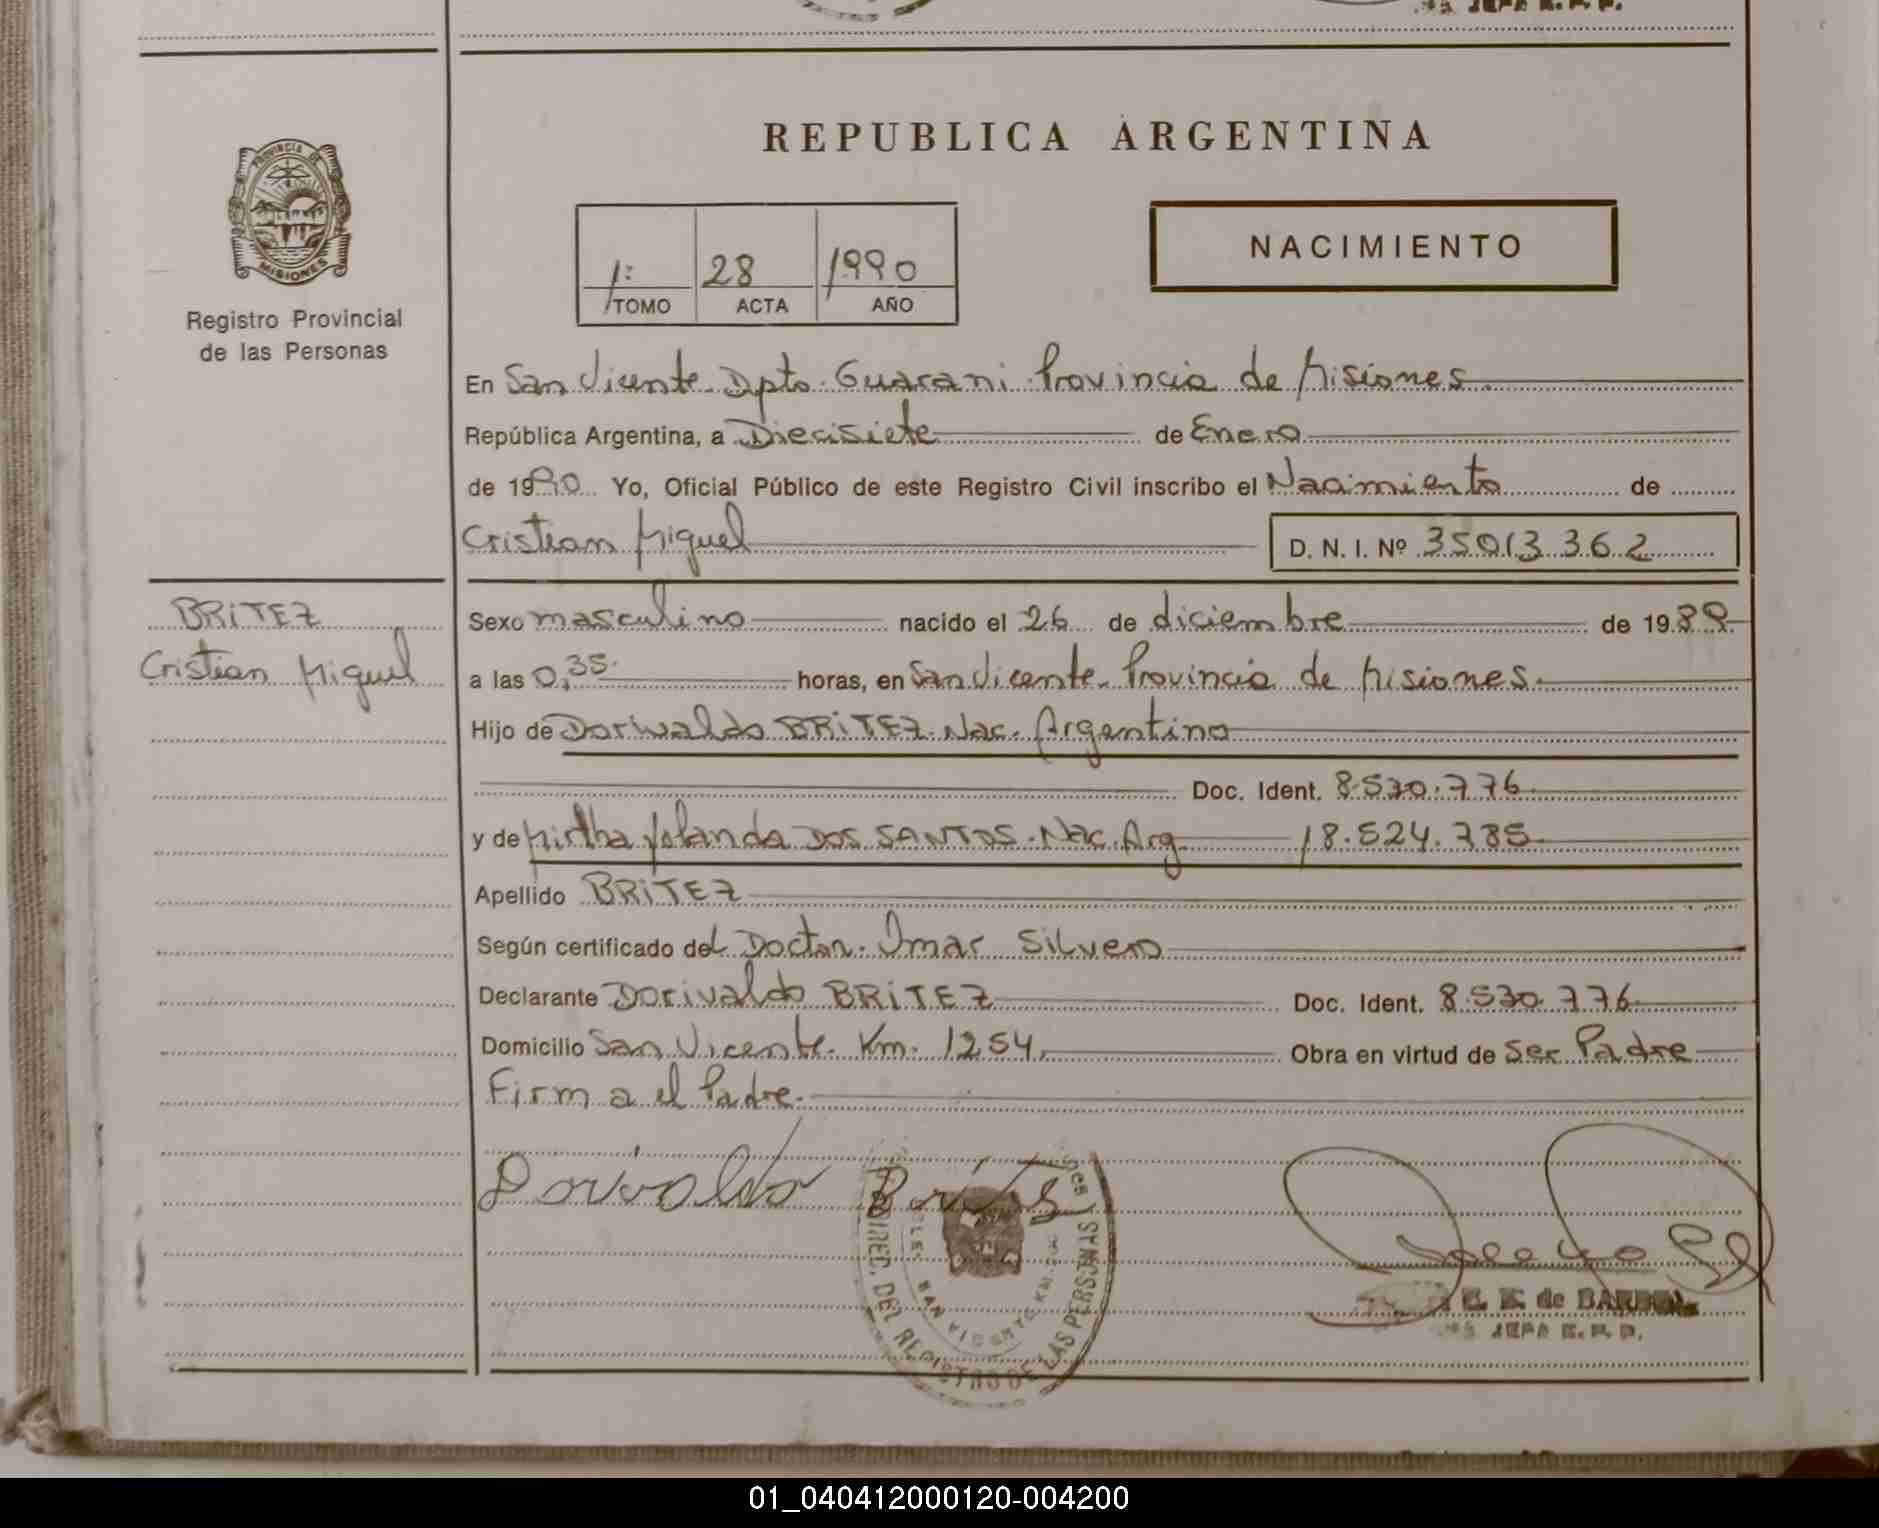 REPUBLICA ARGENTINA
PROVINCIA DE
MISIONES
Registro Provincial
de las Personas
1: 28 1990
TOMO ACTA AÑO
NACIMIENTO
En San Vicente Dpto. Guarani Provincia de Misiones.
República Argentina, a Diecisiete de Enero
de 1990 Yo, Oficial Público de este Registro Civil inscribo el Nacimiento de
Cristian Miguel D. N. I. Nº 35013362
BRITEZ
Cristian Miguel
Sexo masculino nacido el 26 de diciembre de 1989
a las 0,35 horas, en San Vicente. Provincia de Misiones.
Hijo de Doriwaldo BRITEZ. Nac. Argentino
Doc. Ident. 8.530.776
y de Mirtha Yolanda DOS SANTOS. Nac. Arg 18.524.785
Apellido BRITEZ
Según certificado del Doctor. Omar Silvero
Declarante Dorivaldo BRITEZ Doc. Ident. 8.530.776
Domicilio San Vicente. Km. 1254. Obra en virtud de Ser Padre
Firma el Padre.
Dorivaldo
DIREC. DEL REGISTRO DE LAS PERSONAS
SAN VICENTE KM.
de
JEFA R. P. P.
01_040412000120-004200